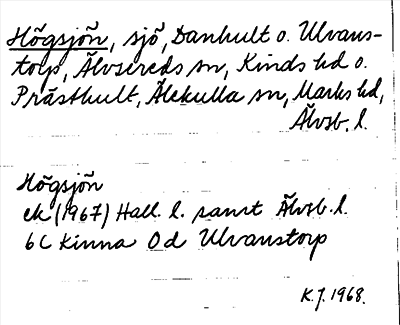 Högsjön, sjö, Danhult o. Ulvans-
torp, Älvsereds sn, Kinds hd o.
Prästhult, Älekulla sn, Marks hd,
Älvsb. l.
Högsjön
ek (1967) Hall. l. samt Älvsb. l.
6C Kinna 0d Ulvanstorp
K.J. 1968.